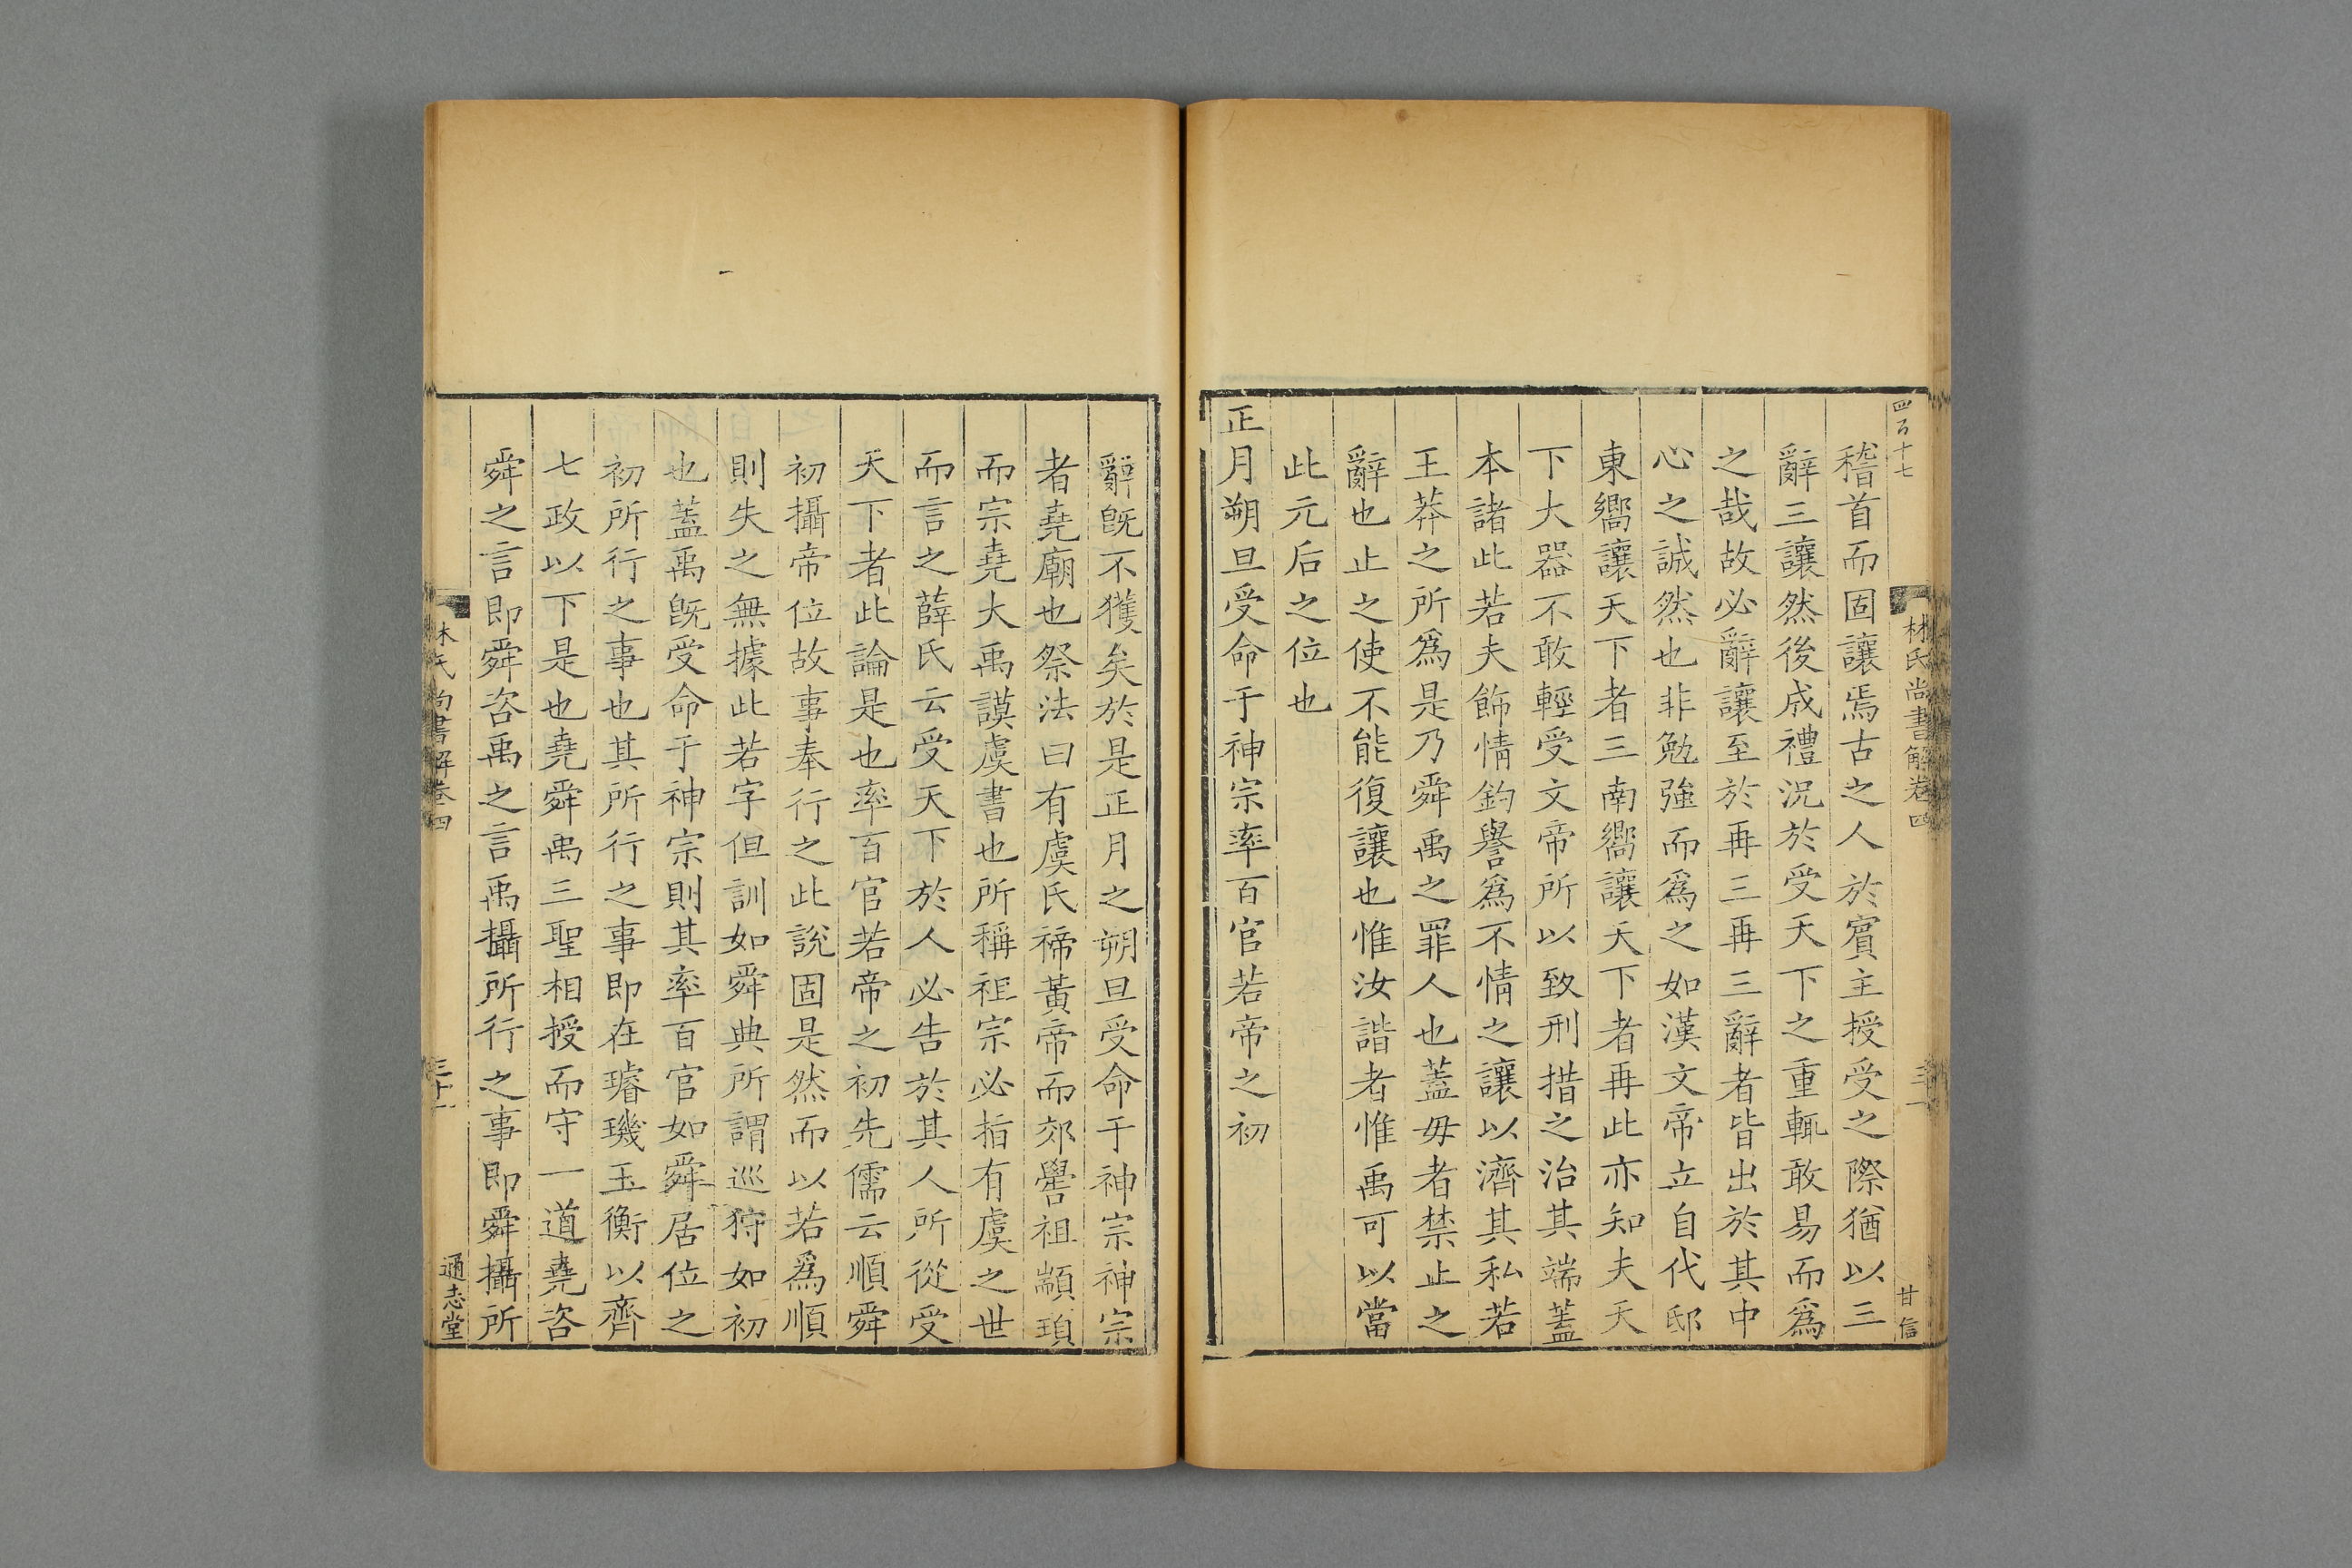 四百十七
林氏尚書解卷四
三一
甘信
稽首而固讓焉古之人於賓主授受之際猶以三
辭三讓然後成禮況於受天下之重輒敢易而爲
之哉故必辭讓至於再三再三辭者皆出於其中
心之誠然也非勉強而爲之如漢文帝立自代邸
東嚮讓天下者三南嚮讓天下者再此亦知夫天
下大器不敢輕受文帝所以致刑措之治其端蓋
本諸此若夫飾情釣譽爲不情之讓以濟其私若
王莽之所爲是乃舜禹之罪人也蓋毋者禁止之
辭也止之使不能復讓也惟汝諧者惟禹可以當
此元后之位也
正月朔旦受命于神宗率百官若帝之初
辭旣不獲矣於是正月之朔旦受命于神宗神宗
者堯廟也祭法曰有虞氏禘黃帝而郊嚳祖顓頊
而宗堯大禹謨虞書也所稱祖宗必指有虞之世
而言之薛氏云受天下於人必告於其人所從受
天下者此論是也率百官若帝之初先儒云順舜
初攝帝位故事奉行之此說固是然而以若爲順
則失之無據此若字但訓如舜典所謂巡狩如初
也蓋禹旣受命于神宗則其率百官如舜居位之
初所行之事也其所行之事即在璿璣玉衡以齊
七政以下是也堯舜禹三聖相授而守一道堯咨
舜之言即舜咨禹之言禹攝所行之事即舜攝所
林氏尚書解卷四
三十一
通志堂